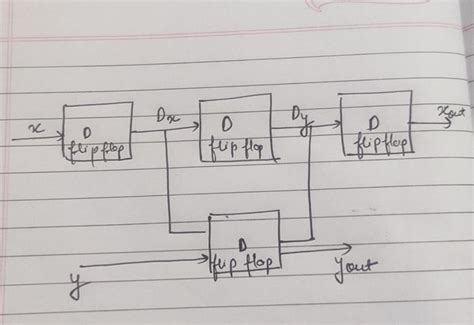 x
D
flip flop
Dx
D
flip flop
Dy
D
flip flop
xout
D
flip flop
y
yout